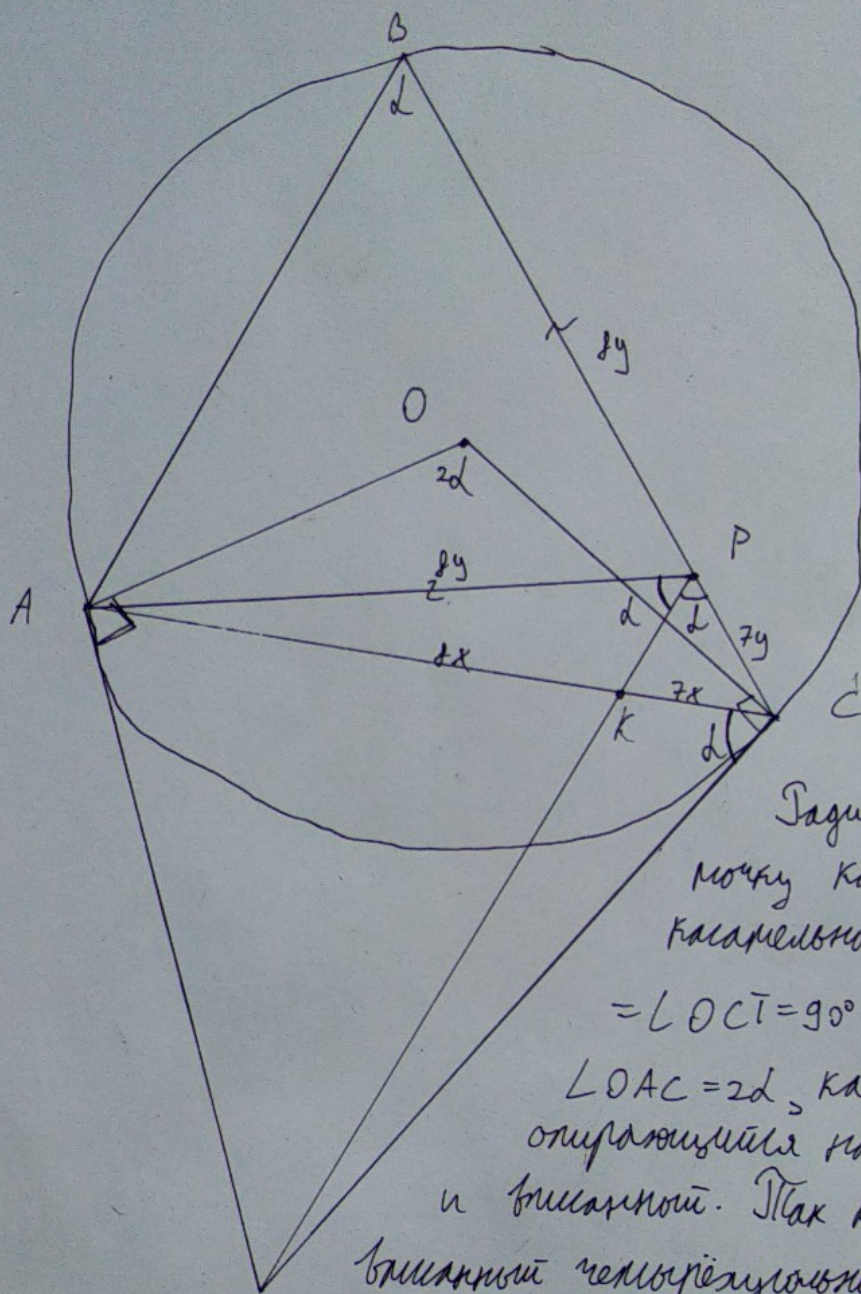 B
α
8y
O
2α
P
8y
A
α
α
7y
8x
7x
K
C
α
Ради
точку ка
касательно
=∠OCT=90°
∠OAC=2α, ка
опирающийся на
и вписанный. Так к
вписанный четырёхугольни